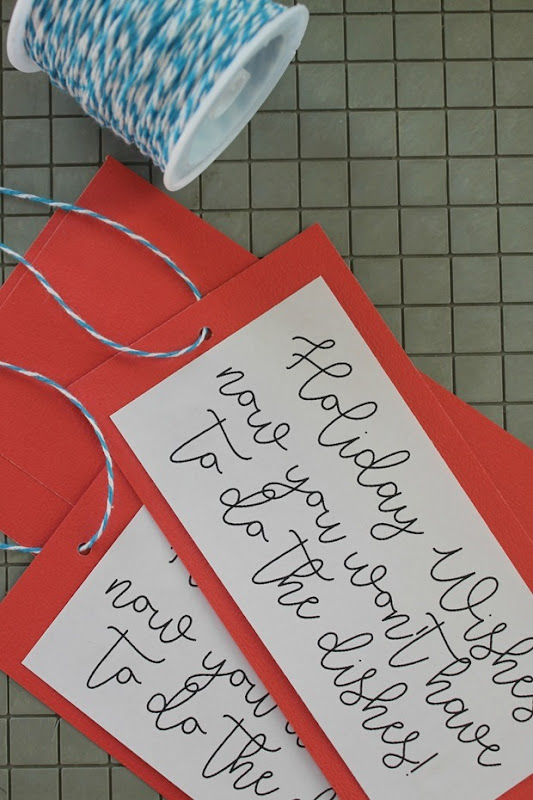 Holiday Wishes
now you won't have
to do the dishes!
now you
to do the